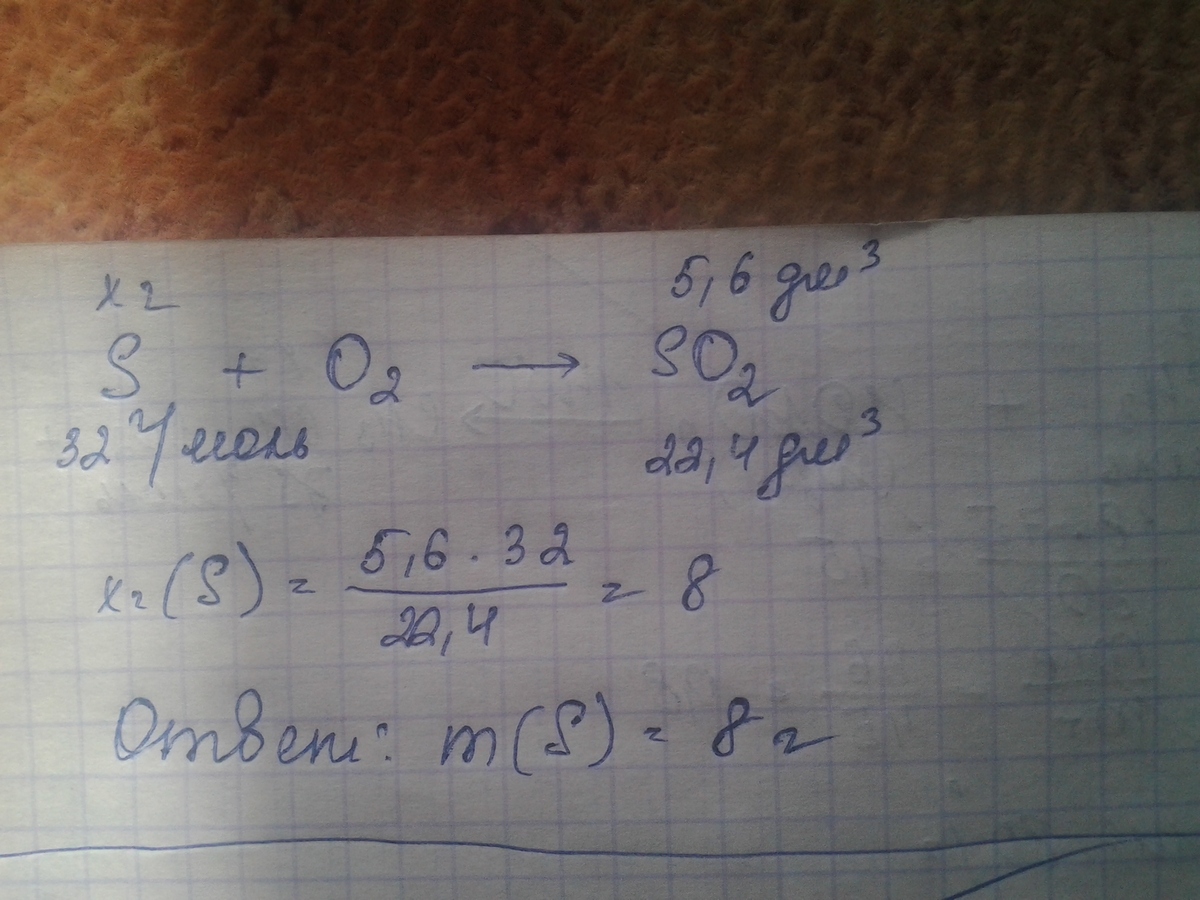 х г 5,6 дм³
S + O₂ → SO₂
32 г/моль 22,4 дм³
х г (S) = 5,6 · 32 / 22,4 = 8
Ответ: m(S) = 8 г